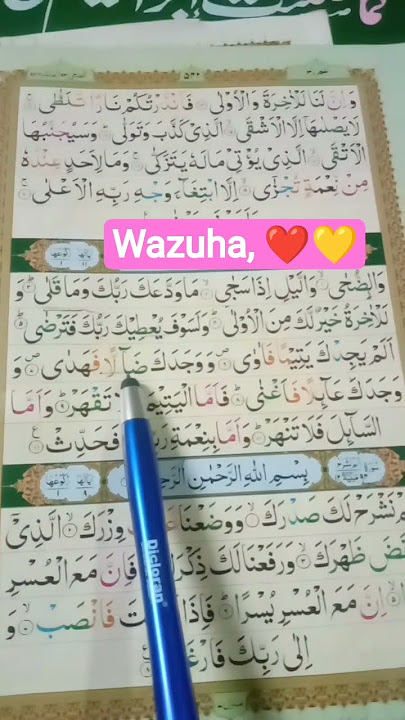 وَاِنَّ لَنَا لَلْاٰخِرَةَ وَالْاُوْلٰى فَاَنْذَرْتُكُمْ نَارًا تَلَظّٰى
لَا يَصْلٰىهَا اِلَّا الْاَشْقَى الَّذِىْ كَذَّبَ وَتَوَلّٰى وَسَيُجَنَّبُهَا
الْاَتْقَى الَّذِىْ يُؤْتِىْ مَالَهٗ يَتَزَكّٰى وَمَا لِاَحَدٍ عِنْدَهٗ
مِنْ نِّعْمَةٍ تُجْزٰى اِلَّا ابْتِغَآءَ وَجْهِ رَبِّهِ الْاَعْلٰى
Wazuha, ❤️💛
وَالضُّحٰى وَالَّيْلِ اِذَا سَجٰى مَا وَدَّعَكَ رَبُّكَ وَمَا قَلٰى وَ
لَلْاٰخِرَةُ خَيْرٌ لَّكَ مِنَ الْاُوْلٰى وَلَسَوْفَ يُعْطِيْكَ رَبُّكَ فَتَرْضٰى
اَلَمْ يَجِدْكَ يَتِيْمًا فَاٰوٰى وَوَجَدَكَ ضَآلًّا فَهَدٰى وَ
وَجَدَكَ عَآئِلًا فَاَغْنٰى فَاَمَّا الْيَتِيْمَ فَلَا تَقْهَرْ وَاَمَّا
السَّآئِلَ فَلَا تَنْهَرْ وَاَمَّا بِنِعْمَةِ رَبِّكَ فَحَدِّثْ
بِسْمِ اللّٰهِ الرَّحْمٰنِ الرَّحِيْمِ
نَشْرَحْ لَكَ صَدْرَكَ وَوَضَعْنَا عَنْكَ وِزْرَكَ الَّذِىْ
ظَهْرَكَ وَرَفَعْنَا لَكَ ذِكْرَكَ فَاِنَّ مَعَ الْعُسْرِ
اِنَّ مَعَ الْعُسْرِ يُسْرًا فَاِذَا فَرَغْتَ فَانْصَبْ وَ
اِلٰى رَبِّكَ فَارْغَبْ
Dicloran